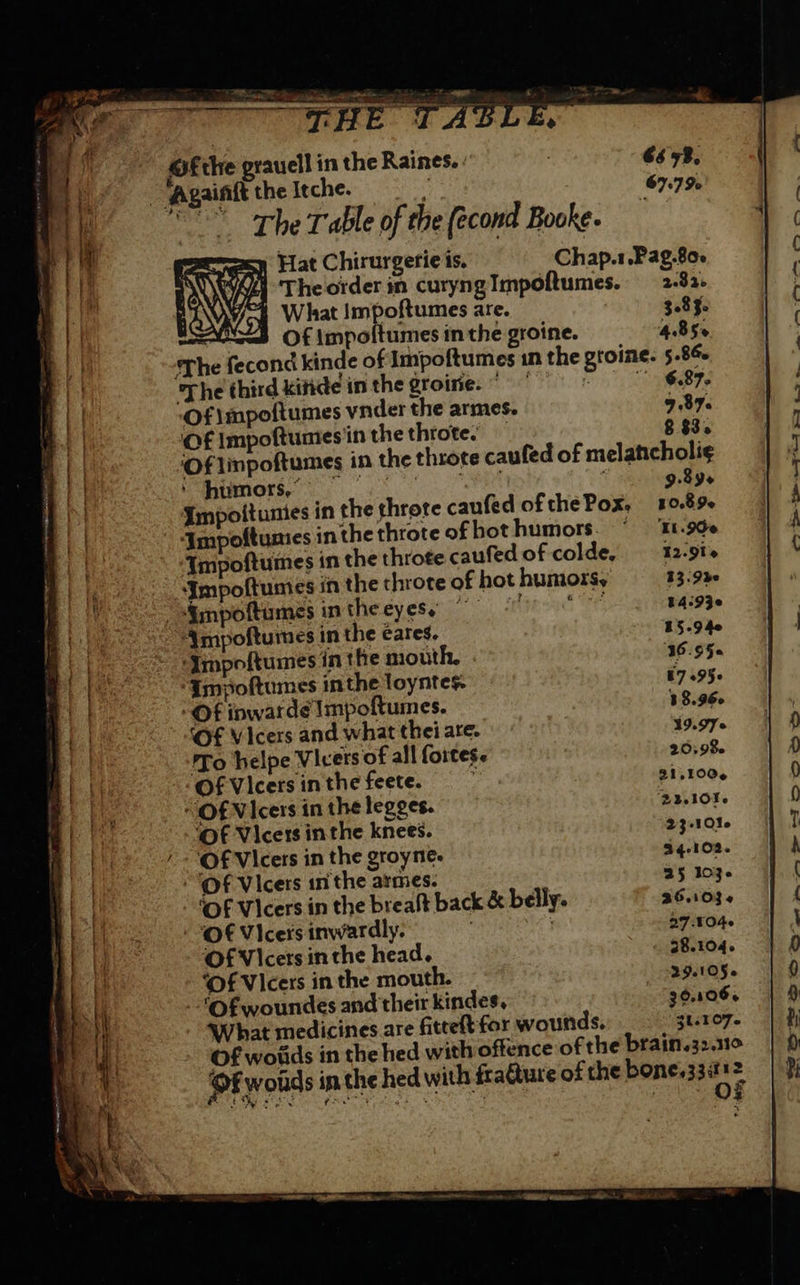 THE TABLE.
Of the grauell in the Raines. 66 78.
Againſt the Itche. 67.79.
The Table of the ſecond Booke.
WHat Chirurgerie is. Chap.1.Pag.80.
The order in curyng Impoſtumes. 2.82.
What Impoſtumes are. 3.83.
Of Impoſtumes in the groine. 4.85.
The ſecond kinde of Impoſtumes in the groine. 5.86.
The third kinde in the groine. 6.87.
Of impoſtumes vnder the armes. 7.87.
Of Impoſtumes in the throte. 8 83.
Of impoſtumes in the throte cauſed of melancholie
humors. 9.89.
Impoſtumes in the throte cauſed of the Pox, 10.89.
Impoſtumes in the throte of hot humors. 11.90.
Impoſtumes in the throte cauſed of colde. 12.91.
Impoſtumes in the throte of hot humors, 13.92.
Impoſtumes in the eyes. 14.93.
Impoſtumes in the eares. 15.94.
Impoſtumes in the mouth. 16.95.
Impoſtumes in the loyntes. 17.95.
Of inwarde Impoſtumes. 18.96.
Of Vlcers and what thei are. 19.97.
To helpe Vlcers of all ſortes. 20.98.
Of Vlcers in the feete. 21.100.
Of Vlcers in the legges. 22.101.
Of Vlcers in the knees. 23.101.
Of Vlcers in the groyne. 24.102.
Of Vlcers in the armes. 25 103.
Of Vlcers in the breaſt back & belly. 26.103.
Of Vlcers inwardly. 27.104.
Of Vlcers in the head. 28.104.
Of Vlcers in the mouth. 29.105.
Of woundes and their kindes. 30.106.
What medicines are fitteſt for wounds. 31.107.
Of woūds in the hed with offence of the brain.32.110
Of woūds in the hed with fracture of the bone.33.112
Of